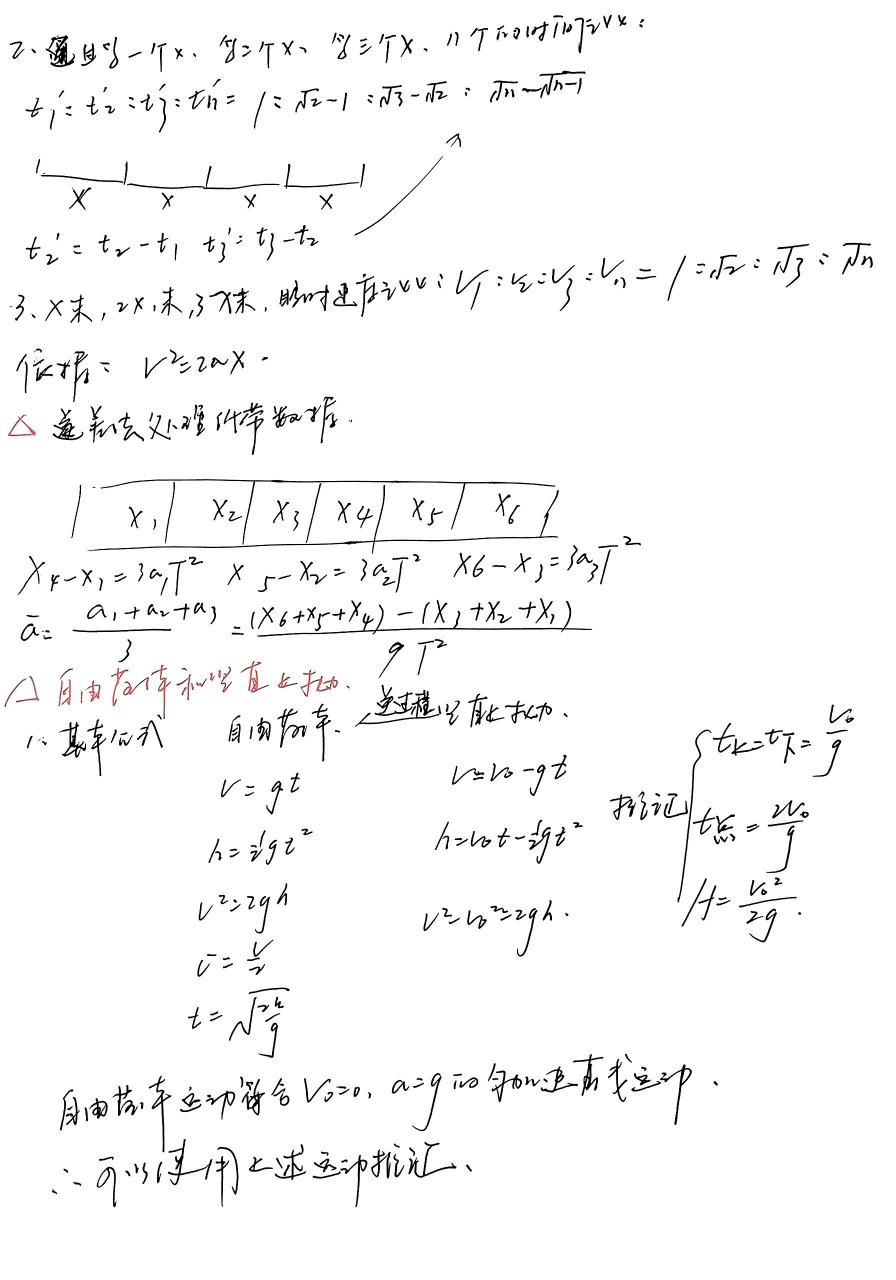 2、通过第一个x、第二个x、第三个x、n个的时间之比:
t₁':t₂':t₃':tn'= 1:√2-1:√3-√2:√n-√n-1
x x x x
t₂'=t₂-t₁ t₃'=t₃-t₂
3、x末,2x末,3x末,瞬时速度之比:V₁:V₂:V₃:Vn=1:√2:√3:√n
依据: V²=2aX.
△ 逐差法处理纸带数据.
X₁ X₂ X₃ X₄ X₅ X₆
X₄-X₁=3a₁T² X₅-X₂=3a₂T² X₆-X₃=3a₃T²
ā= (a₁+a₂+a₃)/3 = ((X₆+X₅+X₄)-(X₃+X₂+X₁))/9T²
△ 自由落体和竖直上抛.
1、基本公式 自由落体、逆过程 竖直上抛.
v=gt v=v₀-gt
h=½gt² h=v₀t-½gt²
v²=2gh v²-v₀²=2gh.
v̄=v/2
t=√2h/g
推论 t上=t下=v₀/g
t总=2v₀/g
H=v₀²/2g.
自由落体运动符合V₀=0,a=g的匀加速直线运动.
∴可以使用上述运动推论、